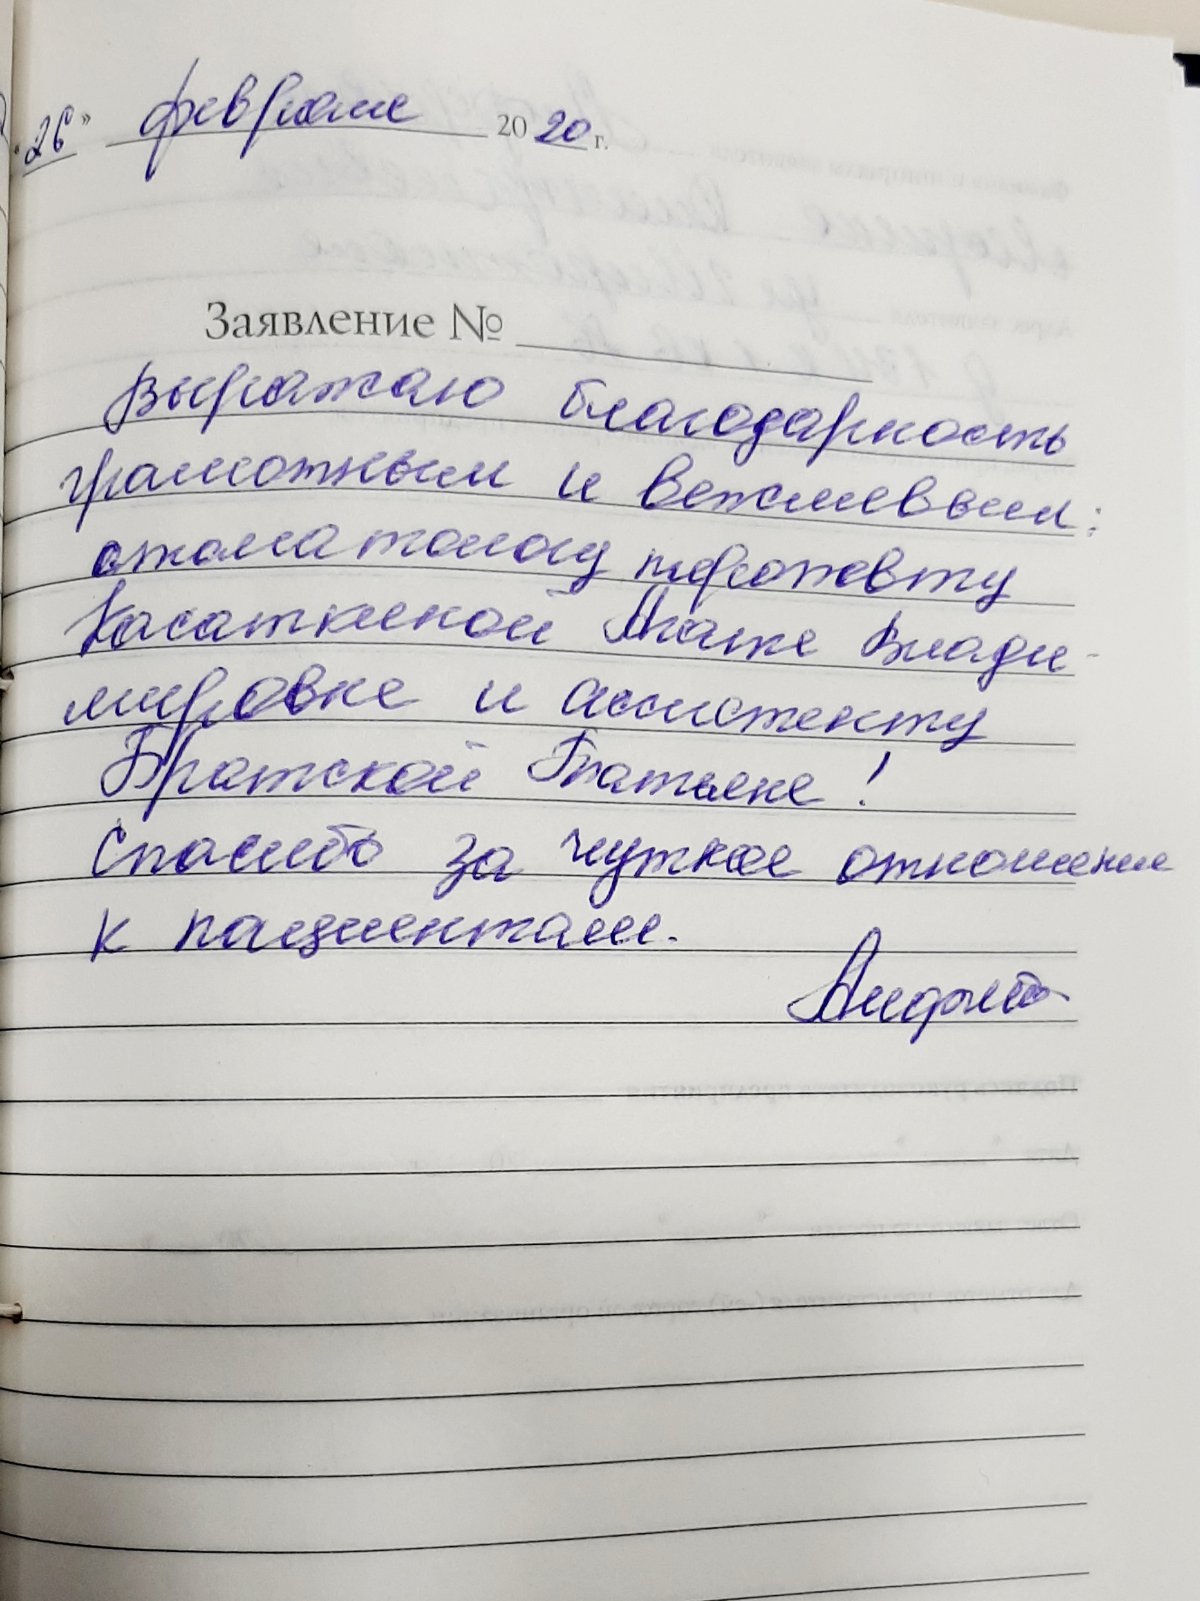 "26" февраля 2020 г.
Заявление №
Выражаю благодарность
грамотным и вежливым:
стоматологу терапевту
Касаткиной Владими-
мировне и ассистенту
Братской Татьяне!
Спасибо за чуткое отношение
к пациентам.